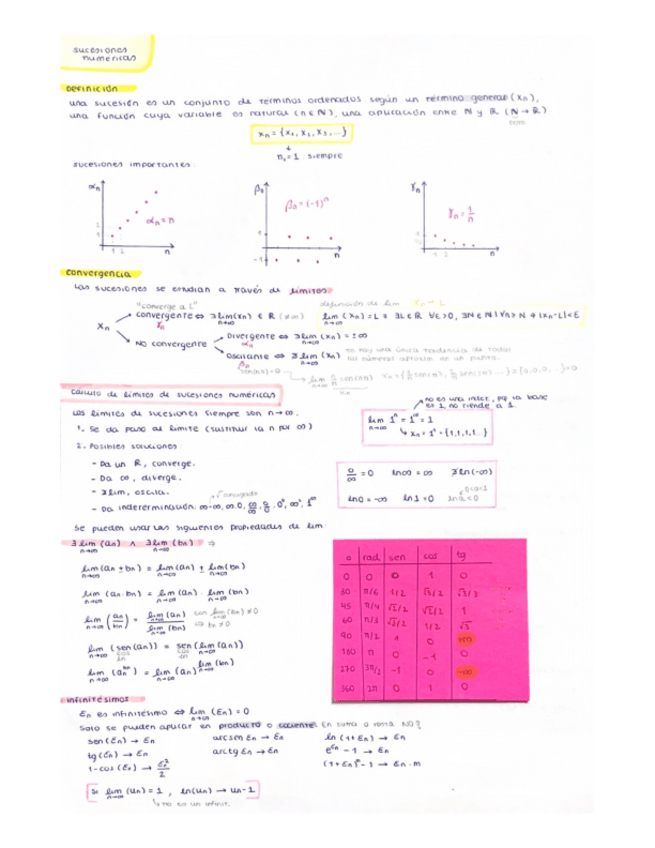 sucesiones
numéricas
Definición
una sucesión es un conjunto de términos ordenados según un término general (xₙ),
una función cuya variable es natural (n ∈ ℕ), una aplicación entre ℕ y ℝ (ℕ → ℝ)
xₙ = {x₁, x₂, x₃, ...}
n₁ = 1 siempre
sucesiones importantes:
αₙ βₙ γₙ
αₙ = n βₙ = (-1)ⁿ γₙ = 1/n
1 2 n n n
convergencia
Las sucesiones se estudian a través de límites
"converge a L"
convergente ⇔ ∃ lim (xₙ) ∈ ℝ (≠∞)
n→∞
γₙ
xₙ
No convergente
Divergente ⇔ ∃ lim (xₙ) = ±∞
n→∞
αₙ
oscilante ⇔ ∄ lim (xₙ)
n→∞
βₙ
definición de lim xₙ → L
lim (xₙ) = L ≡ ∃L∈ℝ ∀ε>0, ∃N∈ℕ | ∀n > N → |xₙ-L| < ε
n→∞
no hay una única tendencia de todos
los números
cálculo de límites de sucesiones numéricas
Los límites de sucesiones siempre son n→∞.
1. Se da paso al límite (sustituir la n por ∞)
2. Posibles soluciones
- Da un ℝ, converge.
- Da ∞, diverge.
- ∄ lim, oscila.
conjugado
- Da indeterminación: ∞-∞, ∞·0, ∞/∞, 0/0, 0⁰, ∞⁰, 1^∞
no es una indet, pq la base
es 1, no tiende a 1.
lim 1ⁿ = 1^∞ = 1
n→∞
xₙ = 1ⁿ = {1,1,1,1...}
0/∞ = 0 ln∞ = ∞ ∄ ln(-∞)
ln0 = -∞ ln1 = 0
Se pueden usar las siguientes propiedades de lim:
∃ lim (aₙ) ∧ ∃ lim (bₙ) ⇒
n→∞ n→∞
lim (aₙ ± bₙ) = lim (aₙ) ± lim (bₙ)
n→∞ n→∞ n→∞
lim (aₙ · bₙ) = lim (aₙ) · lim (bₙ)
n→∞ n→∞ n→∞
lim (aₙ/bₙ) = lim (aₙ) / lim (bₙ) con lim (bₙ) ≠ 0
n→∞ n→∞ n→∞ ⇒ bₙ ≠ 0
lim (sen (aₙ)) = sen (lim (aₙ))
n→∞ cos cos n→∞
ln ln
lim (aₙ^bₙ) = lim (aₙ)^lim (bₙ)
n→∞ n→∞ n→∞
α rad sen cos tg
0 0 0 1 0
30 π/6 1/2 √3/2 √3/3
45 π/4 √2/2 √2/2 1
60 π/3 √3/2 1/2 √3
90 π/2 1 0
180 π 0 -1 0
270 3π/2 -1 0
360 2π 0 1 0
infinitésimos
εₙ es infinitésimo ⇔ lim (εₙ) = 0
n→∞
Solo se pueden aplicar en producto o cociente. En suma o resta NO?
sen (εₙ) → εₙ arcsen εₙ → εₙ ln (1+εₙ) → εₙ
tg (εₙ) → εₙ arctg εₙ → εₙ e^εₙ - 1 → εₙ
1-cos (εₙ) → εₙ²/2 (1+εₙ)ᵐ - 1 → εₙ · m
Si lim (uₙ) = 1, ln(uₙ) → uₙ - 1
n→∞
no es un infinit.